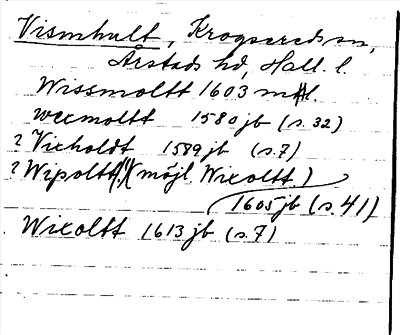 Vismhult, Krogsereds sn,
Årstads hd, Hall. l.
Wissmoltt 1603 mtl.
wexmoltt 1580 jb (s. 32)
? Vixholdt 1589 jb (s. 7)
? Wipoltt (möjl. Wixoltt)
1605 jb (s. 41)
Wixoltt 1613 jb (s. 7)